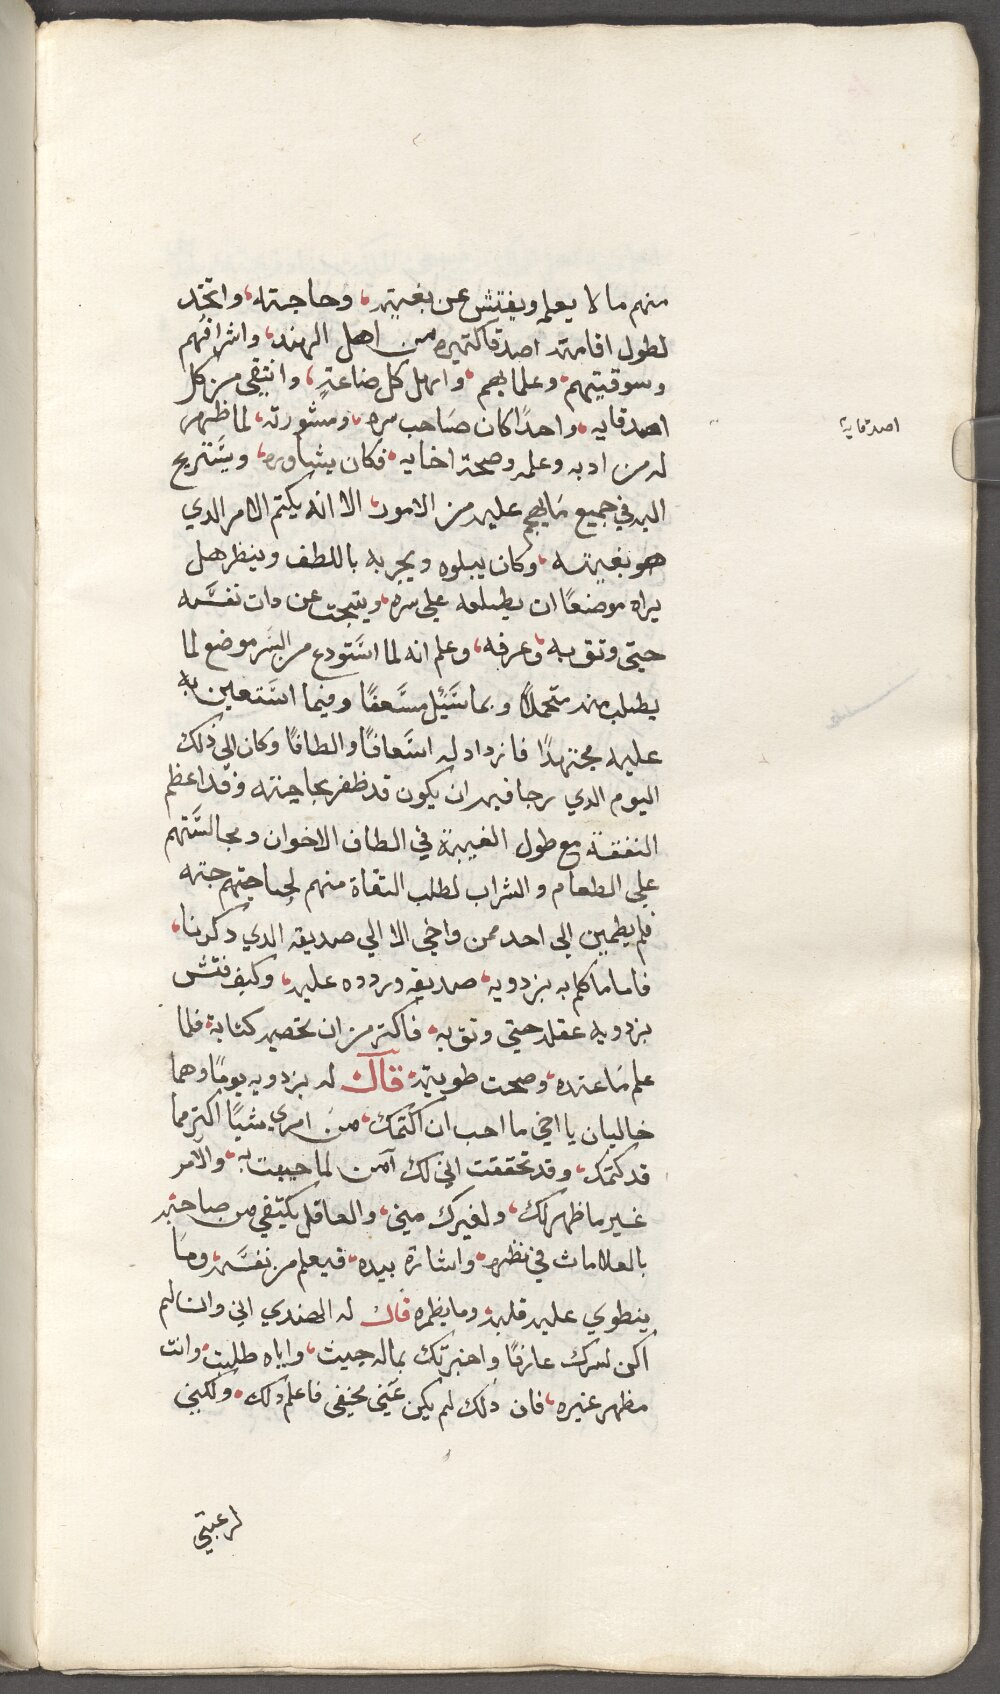 منهم ما لا يعلم ويفتش عن بغيته، وحاجته، واتخد
لطول اقامته اصدقا كتيره من اهل الهند، واشرافهم
وسوقيتهم، وعلمايهم، واهل كل صناعةٍ، وانتقى من كل
اصدقايه، واحدًا كان صاحب سره، ومشورته، لما ظهر
له من ادبه وعلمه وصحة اخايه، فكان يشاوره، ويستريح
اليه في جميع ما يهجم عليه من الامور، الا انه يكتم الامر الدي
هو بغيته، وكان يبلوه ويجربه باللطف وينظر هل
يراه موضعًا ان يطلعه علي سره، ويتبحت عن دات نفسه
حتى وتق به، وعرفه، وعلم انه لما استودع من السر موضع لما
يطلب منه متحملًا وبما سئل مسعفًا وفيما استعين به
عليه مجتهدًا فازداد له اسعافًا والطافًا وكان الي ذلك
اليوم الدي رجا فيه ان يكون قد ظفر بحاجته وقد اعظم
النفقة مع طول الغيبة في الطاف الاخوان ومجالستهم
علي الطعام والشراب لطلب التقاة منهم لحاجتهم جته
فلم يطمين الي احد ممن واخي الا الي صديقه الدي دكرنا،
فاما ما كلم به بزدويه، صديقه ورددوه عليه، وكيف فتش
بزدويه عقله حتي وتق به، فاكتر من ان تحصيه كتابة، فلما
علم ما عنده، وصحت طويته، قال له بزدويه يومًا وهما
خاليان يا اخي ما احب ان اكتمك، من امري شيًا اكتر مما
قد كتمتك، وقد تحققت اني لك آمن لما جيت به، والامر
غير ما ظهر لك، ولغيرك مني، والعاقل يكتفي من صاحبه
بالعلامات في نظره، واشارة بيده، فيعلم من نفسه، وما
ينطوي عليه قلبه، وما يظمره قال له الهندي اني وان لم
اكن لسرك عارفًا واخبرتك بما له جيت، واياه طلبت، وانت
مظهر غيره، فان ذلك لم يكن عني يخفى فاعلم دلك، ولكني
لرغبتي
اصدقايه